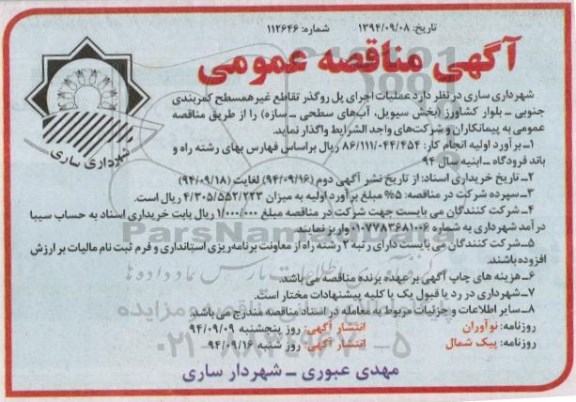 تاریخ: ۱۳۹۴/۰۹/۰۸ شماره: ۱۱۲۶۴۶
آگهی مناقصه عمومی
شهرداری ساری
شهرداری ساری در نظر دارد عملیات اجرای پل روگذر تقاطع غیرهمسطح کمربندی
جنوبی ـ بلوار کشاورز (بخش سیویل، آب‌های سطحی ـ سازه) را از طریق مناقصه
عمومی به پیمانکاران و شرکت‌های واجد الشرایط واگذار نماید.
۱ـ برآورد اولیه انجام کار: ۸۶/۱۱۱/۰۴۴/۴۵۴ ریال براساس فهارس بهای رشته راه و
باند فرودگاه ـ ابنیه سال ۹۴
۲ـ تاریخ خریداری اسناد: از تاریخ نشر آگهی دوم (۹۴/۰۹/۱۶) لغایت (۹۴/۰۹/۱۸)
۳ـ سپرده شرکت در مناقصه: ۵% مبلغ برآورد اولیه به میزان ۴/۳۰۵/۵۵۲/۲۲۳ ریال است.
۴ـ شرکت کنندگان می بایست جهت شرکت در مناقصه مبلغ ۱/۰۰۰/۰۰۰ ریال بابت خریداری اسناد به حساب سیبا
درآمد شهرداری به شماره ۰۱۰۷۷۸۳۶۸۱۰۰۶ واریز نمایند.
۵ـ شرکت کنندگان می بایست دارای رتبه ۲ رشته راه از معاونت برنامه‌ریزی استانداری و فرم ثبت نام مالیات بر ارزش
افزوده باشند.
۶ـ هزینه های چاپ آگهی بر عهده برنده مناقصه می باشد.
۷ـ شهرداری در رد یا قبول یک یا کلیه پیشنهادات مختار است.
۸ـ سایر اطلاعات و جزئیات مربوط به معامله در اسناد مناقصه مندرج می‌باشد.
روزنامه: نوآوران انتشار آگهی: روز پنجشنبه ۹۴/۰۹/۰۹
روزنامه: پیک شمال انتشار آگهی: روز شنبه ۹۴/۰۹/۱۶
مهدی عبوری ـ شهردار ساری